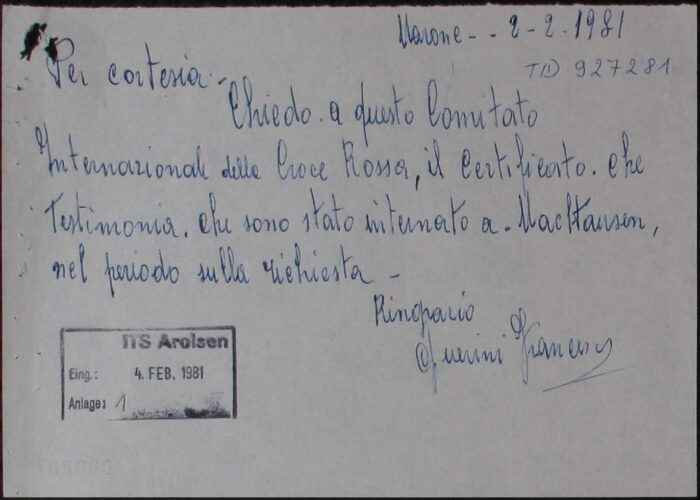 Marone - - 2-2-1981
TID 927281
Per cortesia -
Chiedo. a questo Comitato
Internazionale della Croce Rossa, il Certificato. che
Testimonia. che sono stato internato a - Machtausen,
nel periodo sulla richiesta -
Ringrazio
Guerini Francesco
ITS Arolsen
Eing.: 4. FEB. 1981
Anlage: 1